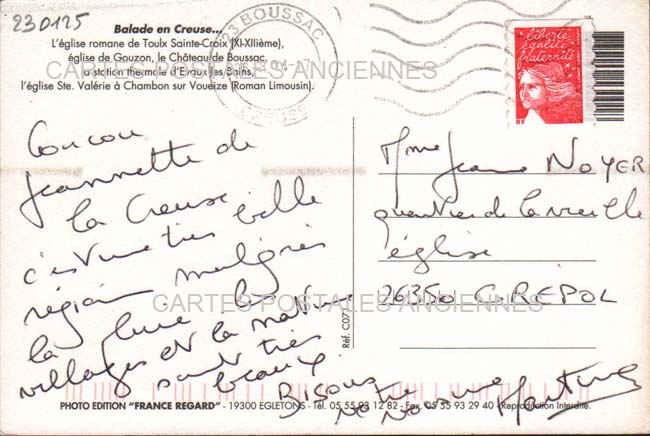 230125
Balade en Creuse...
L'église romane de Toulx Sainte-Croix (XI-XIIème),
église de Gouzon, le Château de Boussac,
la station thermale d'Evaux les Bains,
l'église Ste. Valérie à Chambon sur Voueize (Roman Limousin).
23 BOUSSAC
CREUSE
liberté
égalité
fraternité
RF
CARTES POSTALES ANCIENNES
Coucou
Jeannette de
la Creuse
c'est une très belle
région malgrés
la pluie les
villages et la nature
sont très
beaux.
Bisous
notre
Martine
Mme Jeanne NOYER
quartier de la vieille
église
26350 CREPOL
CARTES POSTALES ANCIENNES
Réf. C077
PHOTO EDITION "FRANCE REGARD" - 19300 EGLETONS - Tél. 05 55 93 12 82 - Fax. 05 55 93 29 40 - Reproduction Interdite.